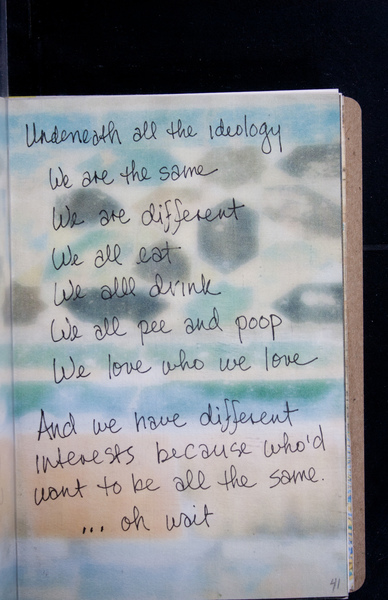 Underneath all the ideology
We are the same
We are different
We all eat
We alll drink
We all pee and poop
We love who we love
And we have different
interests because who'd
want to be all the same.
... oh wait
41